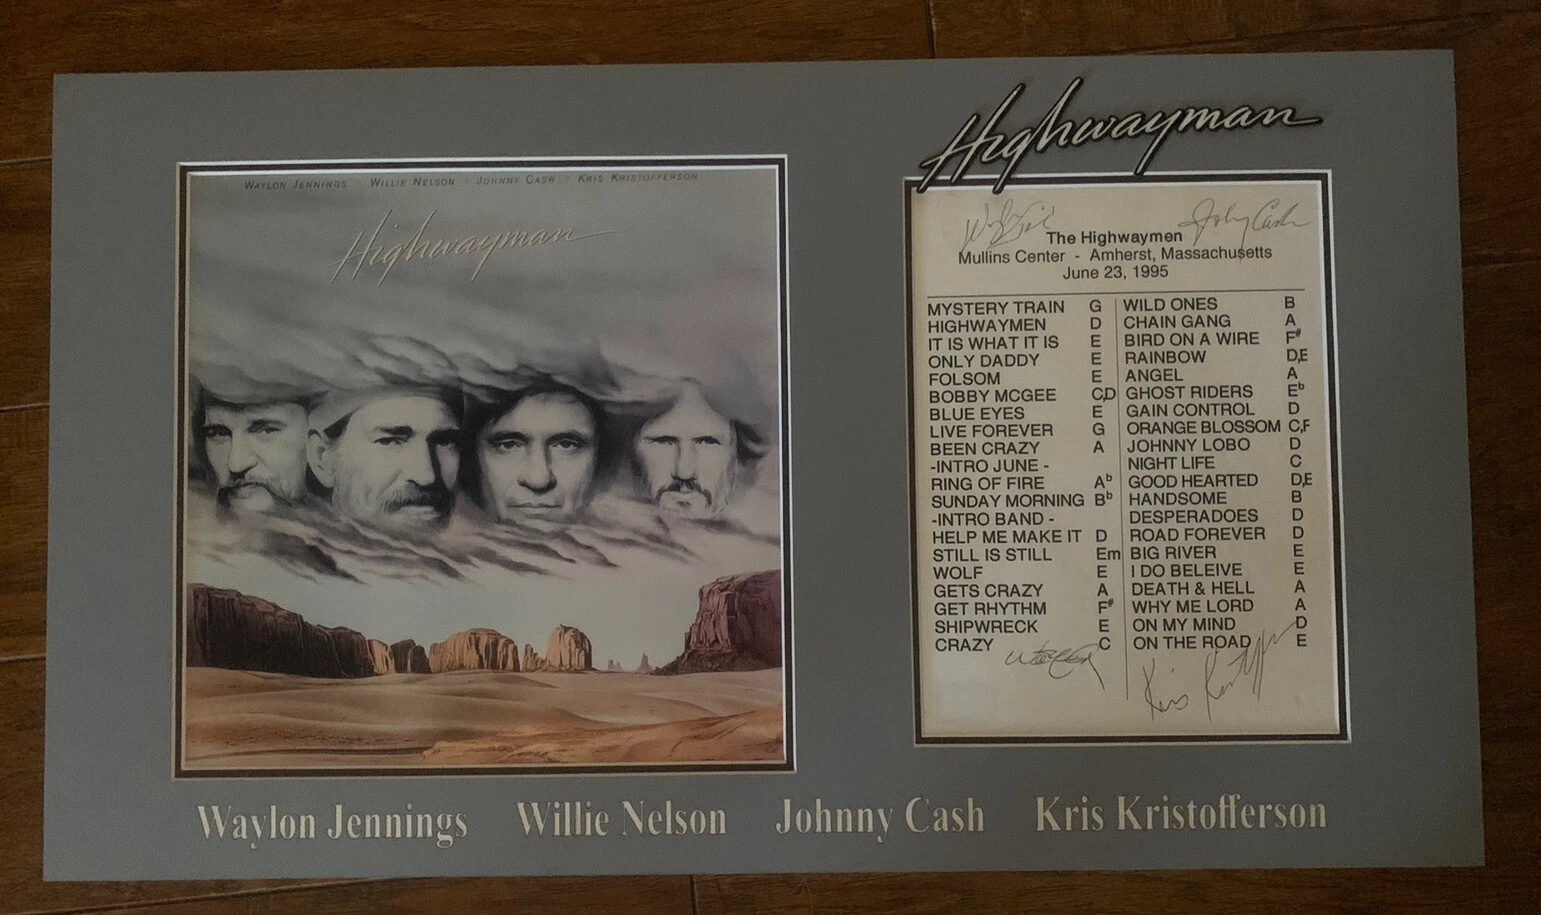 WAYLON JENNINGS · WILLIE NELSON · JOHNNY CASH · KRIS KRISTOFFERSON
Highwayman
Highwayman
Johny Cash
The Highwaymen
Mullins Center - Amherst, Massachusetts
June 23, 1995
MYSTERY TRAIN G
HIGHWAYMEN D
IT IS WHAT IT IS E
ONLY DADDY E
FOLSOM E
BOBBY MCGEE C,D
BLUE EYES E
LIVE FOREVER G
BEEN CRAZY A
-INTRO JUNE -
RING OF FIRE Ab
SUNDAY MORNING Bb
-INTRO BAND -
HELP ME MAKE IT D
STILL IS STILL Em
WOLF E
GETS CRAZY A
GET RHYTHM F#
SHIPWRECK E
CRAZY C
WILD ONES B
CHAIN GANG A
BIRD ON A WIRE F#
RAINBOW D,E
ANGEL A
GHOST RIDERS Eb
GAIN CONTROL D
ORANGE BLOSSOM C,F
JOHNNY LOBO D
NIGHT LIFE C
GOOD HEARTED D,E
HANDSOME B
DESPERADOES D
ROAD FOREVER D
BIG RIVER E
I DO BELEIVE E
DEATH & HELL A
WHY ME LORD A
ON MY MIND D
ON THE ROAD E
Kris Kristofferson
Waylon Jennings Willie Nelson Johnny Cash Kris Kristofferson